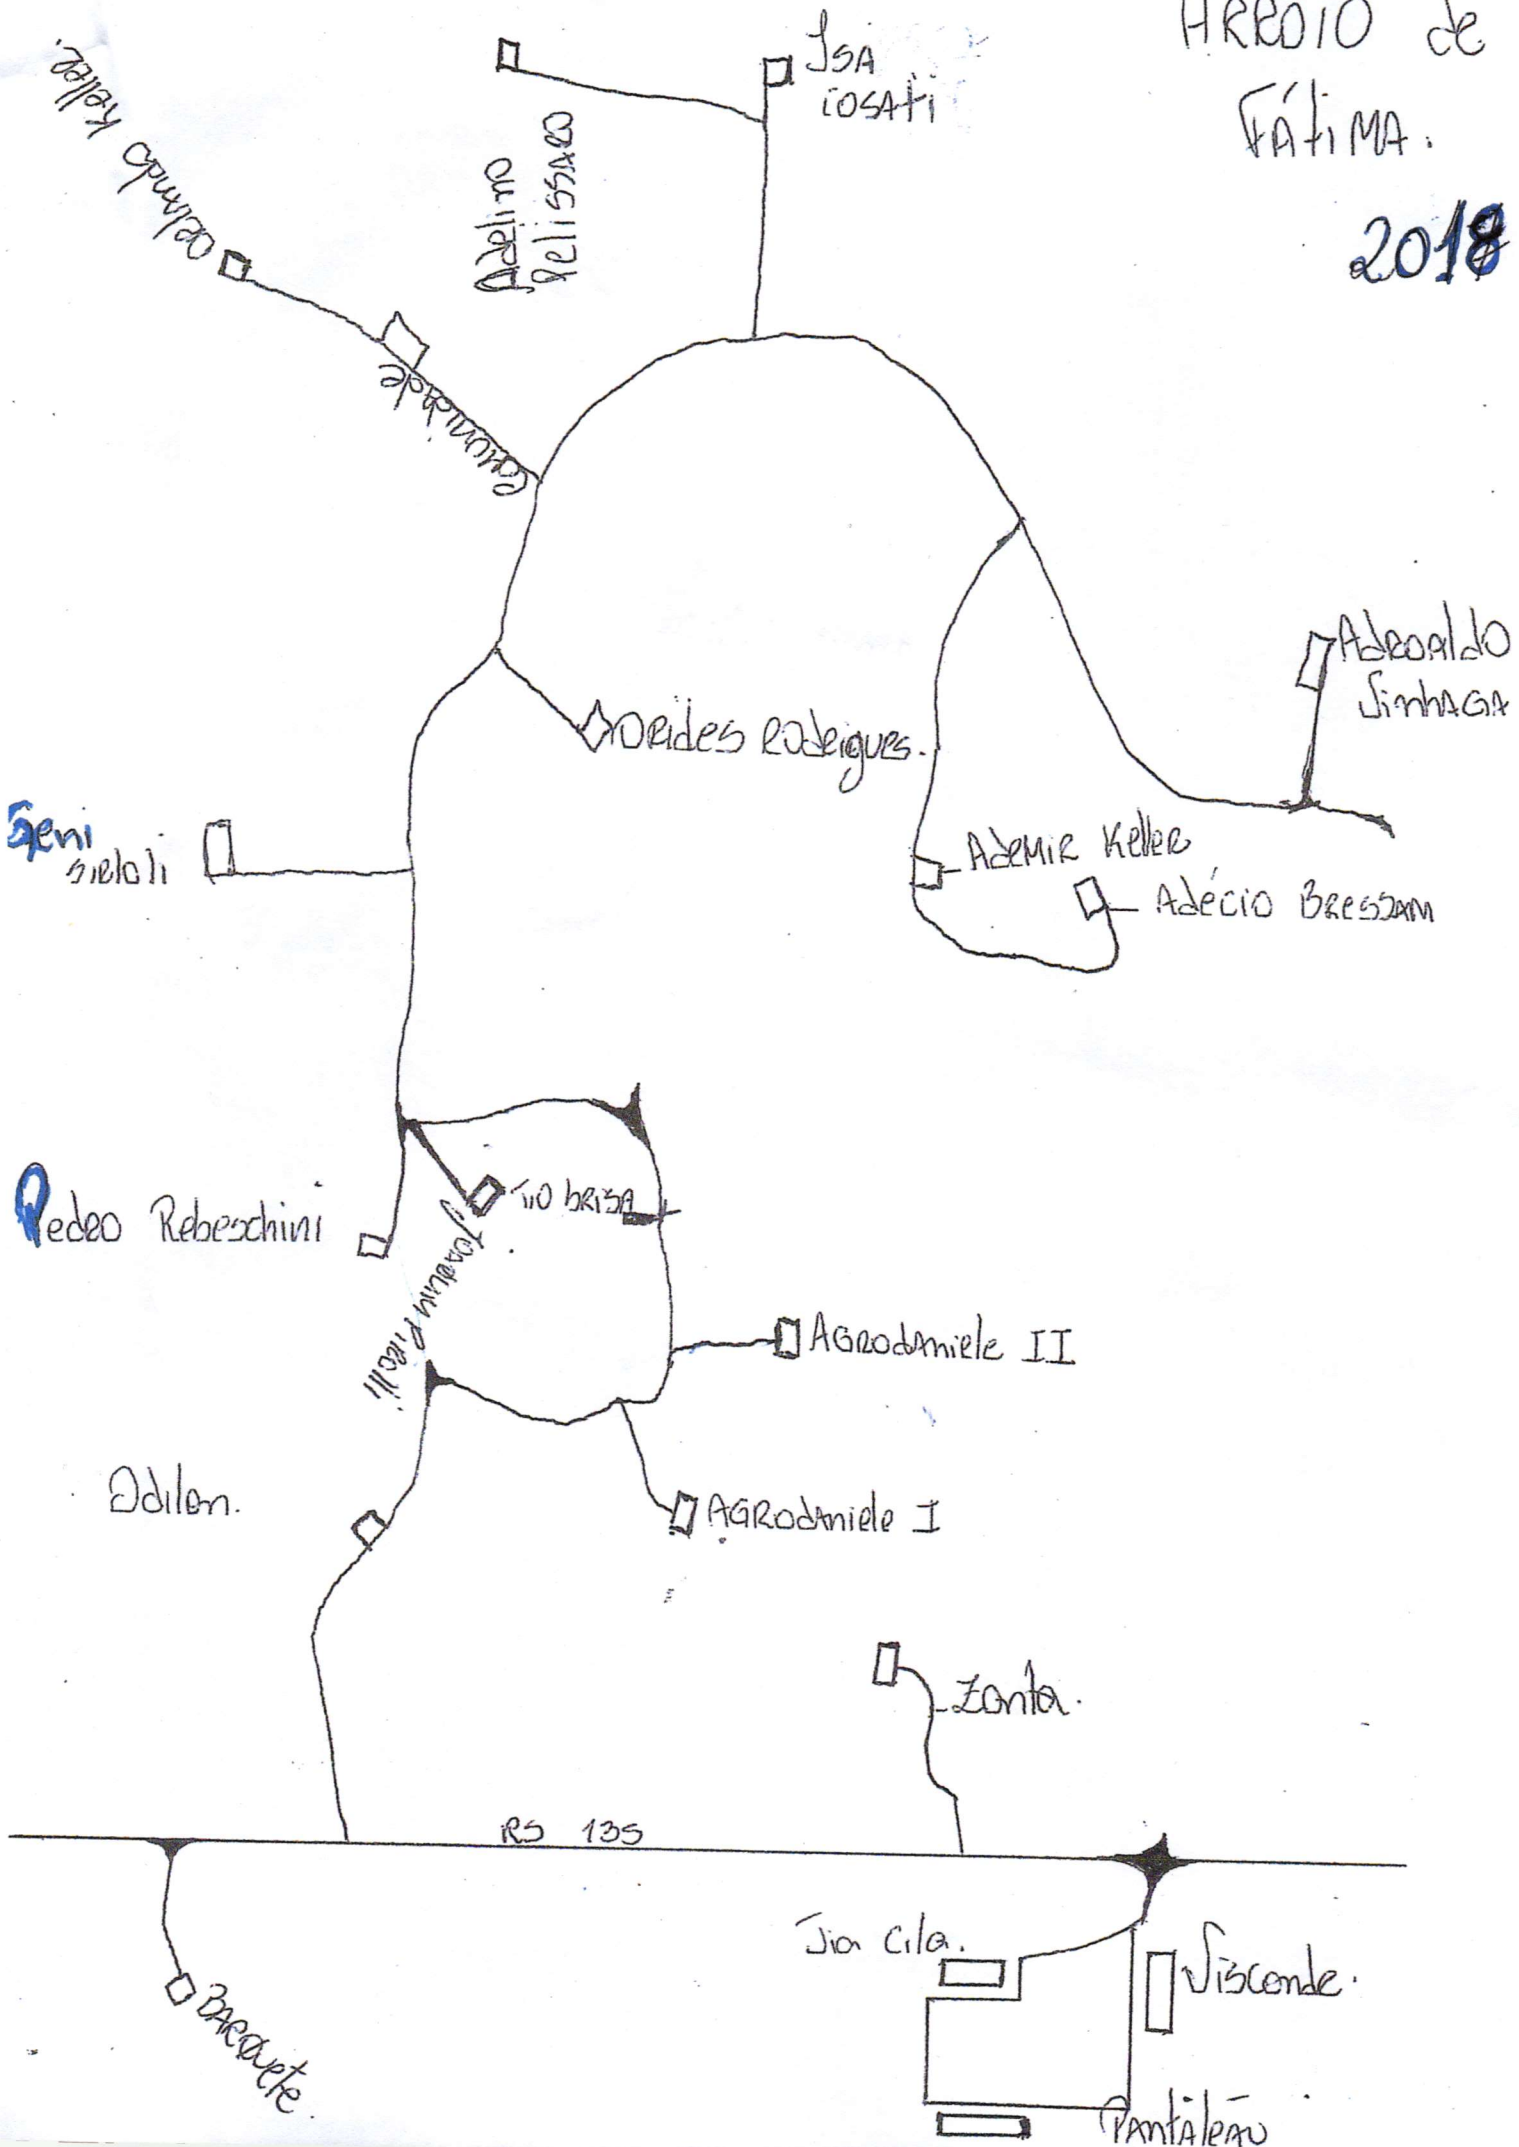 ARROIO de
FÁtiMA.
2018
ISA
COSAti
Adelino
PelissARO
ORlindo Keller.
Comunidade
AdROAldo
VinhAGA
ORides ROdRigues.
Geni
SiRloli
AdeMiR KelleR
Adécio BRessAM
Pedro Rebeschini
Tio bRisA
JOAQuiM PiRolli
AGROdAniele II
Odilon.
AGROdAniele I
Zonta.
RS 135
Tia Cila.
Visconde.
BARQuete.
PANtAleÃo